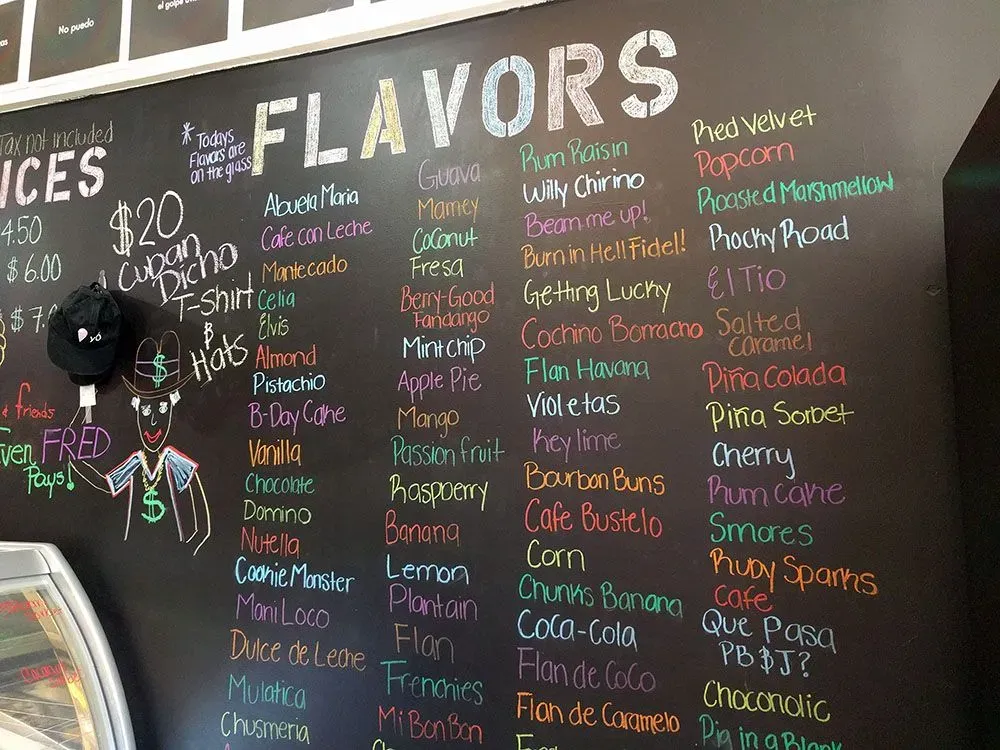 No puedo
el golpe
Tax not included
ICES
4.50
$ 6.00
$ 7.
$20
Cuban
Dicho
T-shirt
$
Hats
& friends
Even FRED
Pays!
* Todays
Flavors are
on the glass
FLAVORS
Abuela Maria
Cafe con Leche
Mantecado
Celia
Elvis
Almond
Pistachio
B-Day Cake
Vanilla
Chocolate
Domino
Nutella
Cookie Monster
Mani Loco
Dulce de Leche
Mulatica
Chusmeria
Guava
Mamey
Coconut
Fresa
Berry-Good
Fandango
Mint chip
Apple Pie
Mango
Passion fruit
Raspberry
Banana
Lemon
Plantain
Flan
Frenchies
Mi Bon Bon
Rum Raisin
Willy Chirino
Beam me up!
Burn in Hell Fidel!
Getting Lucky
Cochino Borracho
Flan Havana
Violetas
Key lime
Bourbon Buns
Cafe Bustelo
Corn
Chunks Banana
Coca-Cola
Flan de Coco
Flan de Caramelo
Red Velvet
Popcorn
Roasted Marshmellow
Rocky Road
El Tio
Salted
caramel
Piña Colada
Piña Sorbet
Cherry
Rum Cake
Smores
Ruby Sparks
Cafe
Que Pasa
PB$J?
Choconolic
Pig in a Blank